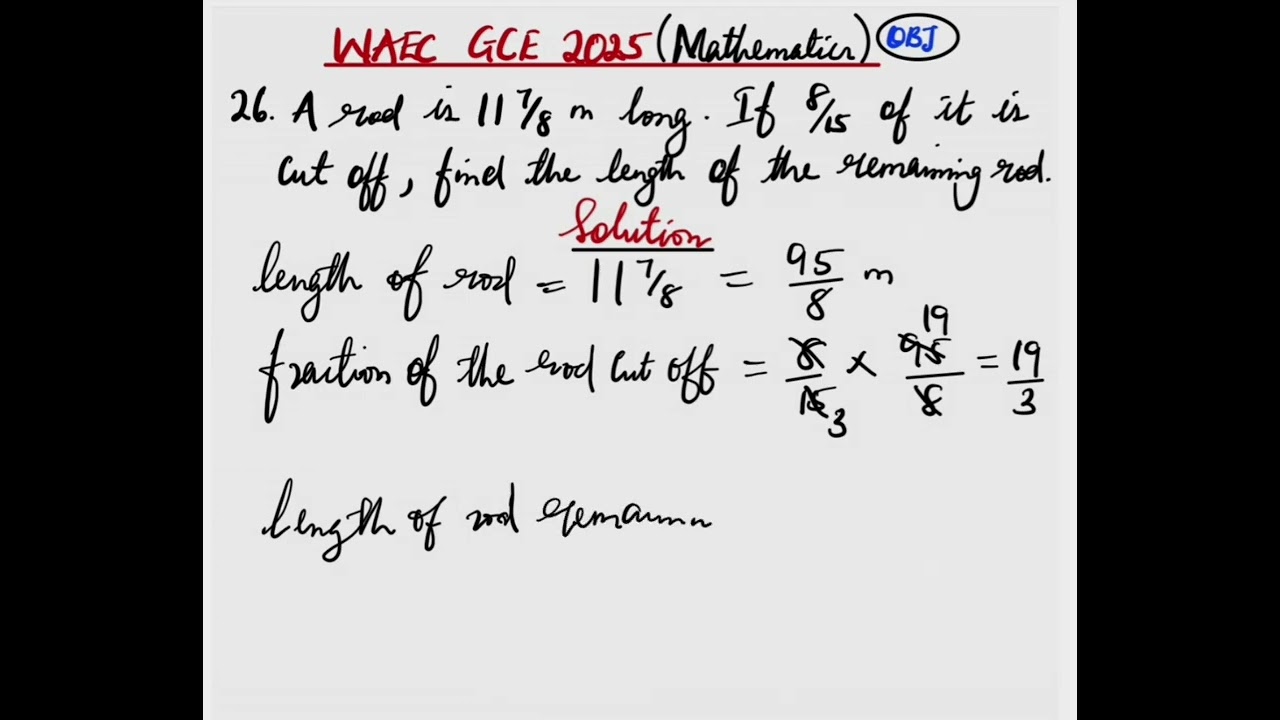 WAEC GCE 2025 (Mathematics) OBJ
26. A rod is 11 7/8 m long. If 8/15 of it is
cut off, find the length of the remaining rod.
Solution
length of rod = 11 7/8 = 95/8 m
fraction of the rod cut off = 8/15 3 × 19 95/8 = 19/3
length of rod remainin